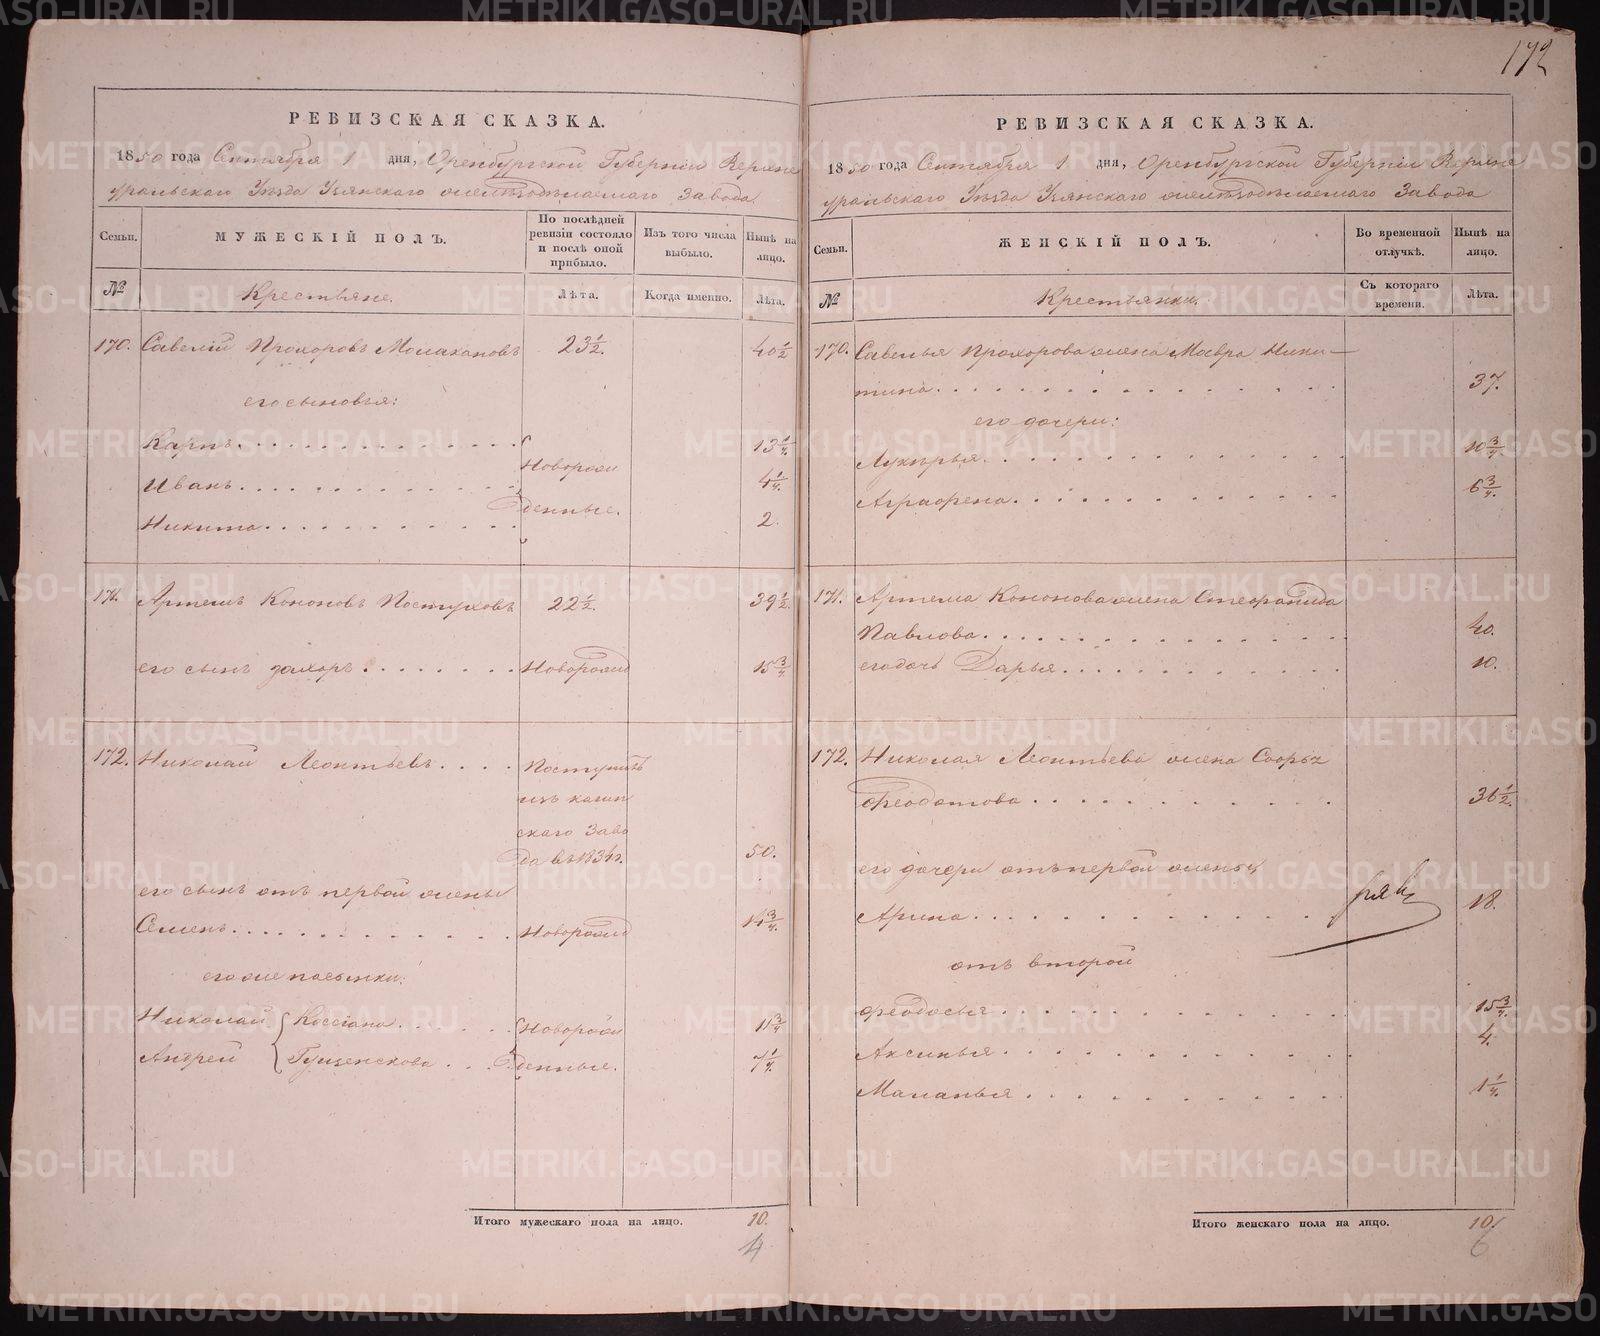 172
РЕВИЗСКАЯ СКАЗКА.
1850 года Сентября 1 дня, Оренбургской Губерніи Верхне
уральскаго Уѣзда Узянскаго желѣзодѣлаемаго Завода
Семьи.
МУЖЕСКІЙ ПОЛЪ.
По послѣдней ревизіи состояло и послѣ оной прибыло.
Изъ того числа выбыло.
Нынѣ на лицо.
№
Крестьяне.
Лѣта.
Когда именно.
Лѣта.
170. Савелій Прохоровъ Молахановъ 23½. 40½
его сыновья:
Карпъ 13¼
Новорож
Иванъ 4¼.
денные.
Никита 2.
171. Артемъ Кононовъ Постуховъ 22½. 39½.
его сынъ Новорожд 15¾
172. Николай Леонтьевъ
Поступилъ
изъ
скаго Заво
да въ 1834г. 50.
его сынъ отъ первой жены
Семенъ Новорожд 14¾
его же пасынки:
Николай Кассіана Новорож 11¾
Андрей Гущенскова денные. 7¼.
Итого мужескаго пола на лицо. 10.
4
РЕВИЗСКАЯ СКАЗКА.
1850 года Сентября 1 дня, Оренбургской Губерніи Верхне
уральскаго Уѣзда Узянскаго желѣзодѣлаемаго Завода
Семьи.
ЖЕНСКІЙ ПОЛЪ.
Во временной отлучкѣ.
Нынѣ на лицо.
№
Крестьянки.
Съ котораго времени.
Лѣта.
170. Савелья Прохорова жена Мавра Ники—
тина 37.
его дочери:
Лукерья 10¾
Аграфена 6¾
171. Артема Кононова жена Стефанида
Павлова 40.
его дочь Дарья 10.
172. Николая Леонтьева жена Софья
Феодотова 36½.
его дочери отъ первой жены
Арина 18.
отъ второй
Феодосья 15¾
Аксинья 4.
Маланья 1¼
Итого женскаго пола на лицо. 10
6
METRIKI.GASO-URAL.RU